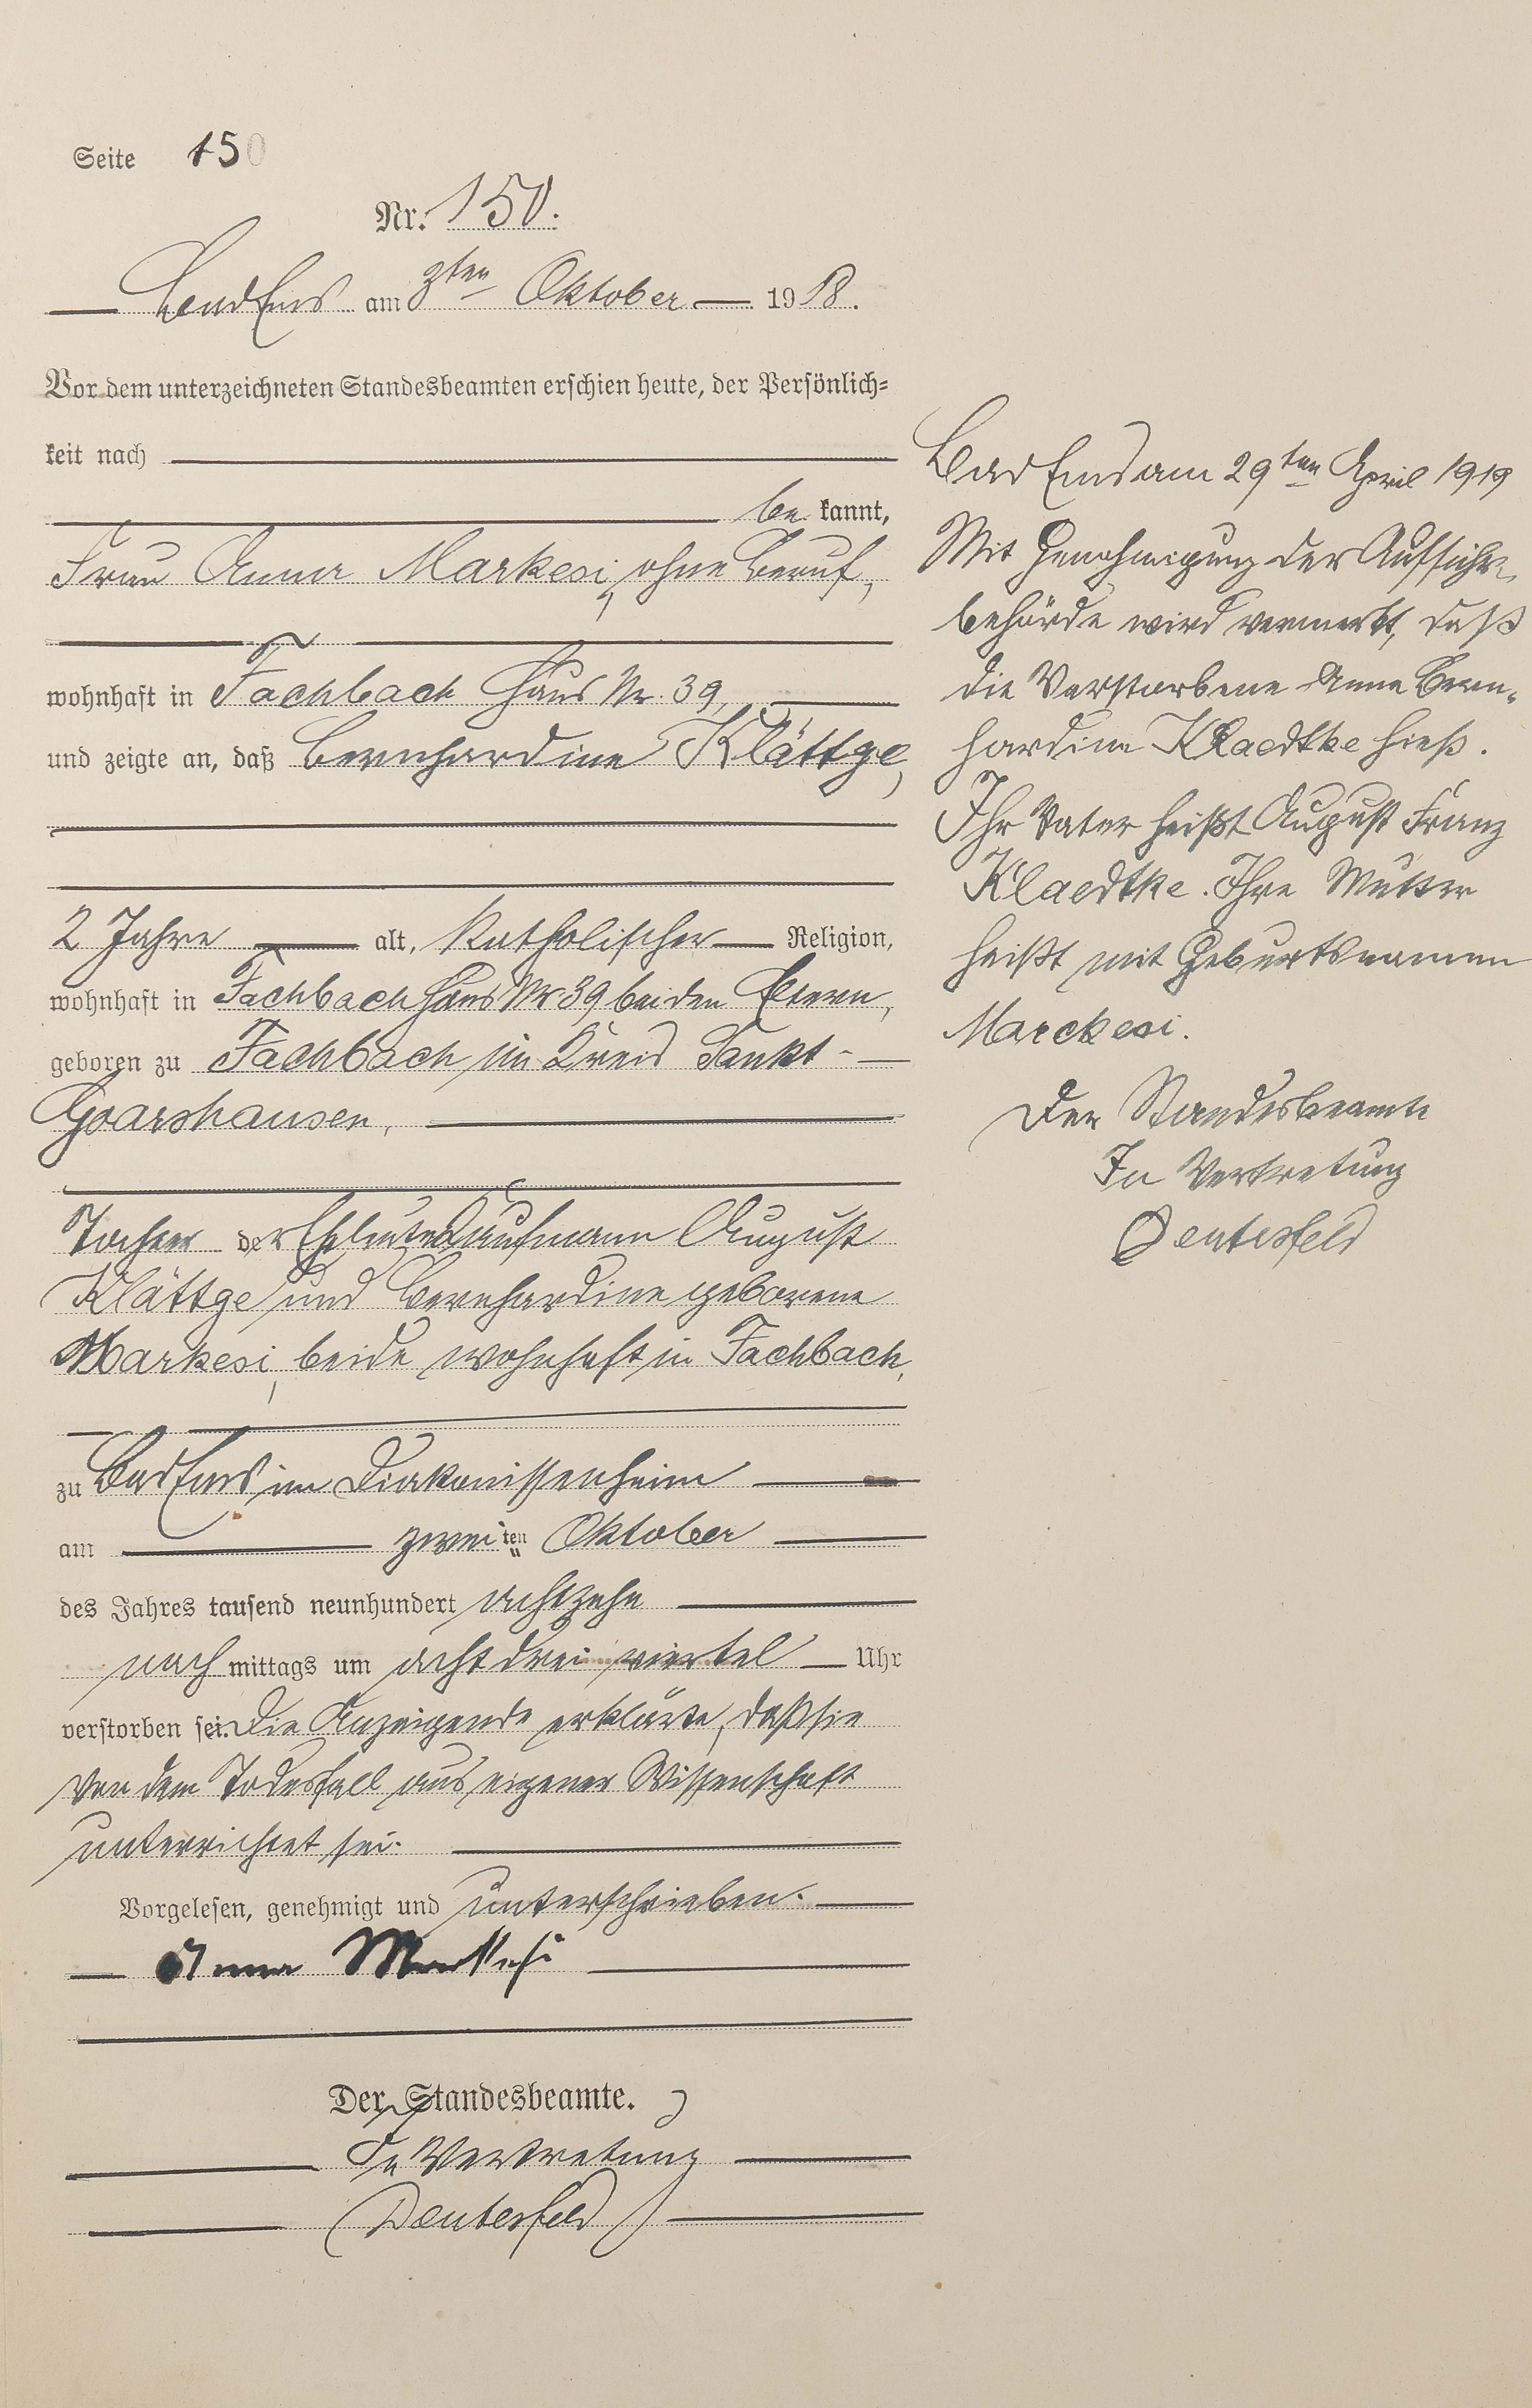 Seite 150
Nr. 150.
Bad Ems am 3ten Oktober 1918.
Vor dem unterzeichneten Standesbeamten erschien heute, der Persönlich=
keit nach
be kannt,
Frau Anna Markesi, ohne Beruf,
wohnhaft in Fachbach Haus Nr. 39,
und zeigte an, daß Bernhardine Klättge,
2 Jahre alt, Katholischer Religion,
wohnhaft in Fachbach Haus Nr 39 bei den Eltern,
geboren zu Fachbach im Kreis Sankt-
Goarshausen,
Tochter der Eheleute Kaufmann August
Klättge und Bernhardine geborene
Markesi, beide wohnhaft in Fachbach,
zu Bad Ems im Diakonissenheim
am zweiten Oktober
des Jahres tausend neunhundert achtzehn
nach mittags um acht drei viertel Uhr
verstorben sei. Die Anzeigende erklärte, daß sie
von dem Todesfall aus eigener Wissenschaft
unterrichtet sei.
Vorgelesen, genehmigt und unterschrieben.
Anna Markesi
Der Standesbeamte.
In Vertretung
Deutesfeld
Bad Ems am 29ten April 1919
Mit Genehmigung der Aufsichts
behörde wird vermerkt, daß
die Verstorbene Anna Bern-
hardine Klaedtke hieß.
Ihr Vater heißt August Franz
Klaedtke. Ihre Mutter
heißt mit Geburtsnamen
Marckesi.
Der Standesbeamte
In Vertretung
Deutesfeld